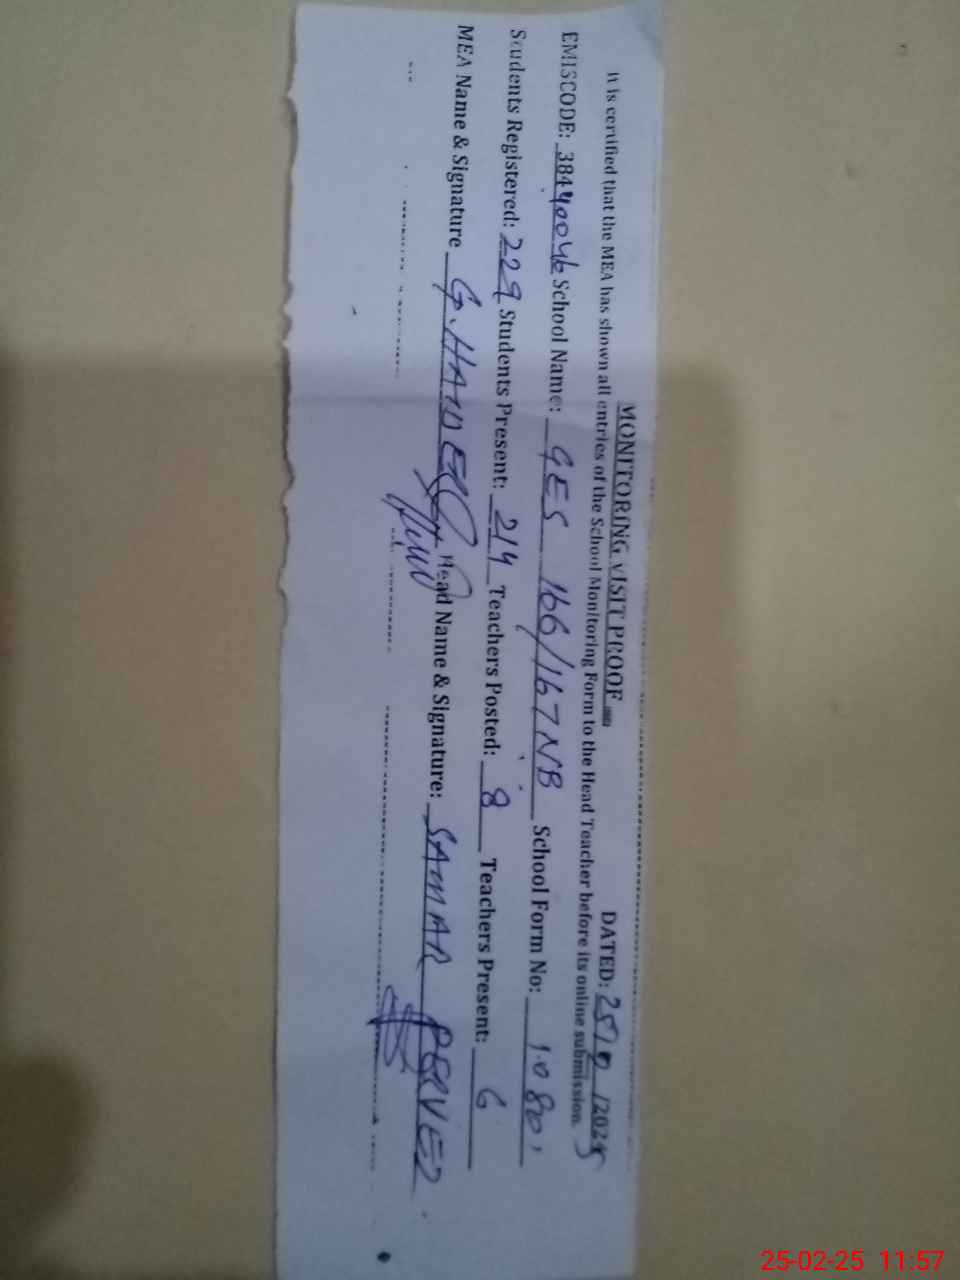 MONITORING VISIT PROOF DATED: 25/2/2025
It is certified that the MEA has shown all entries of the School Monitoring Form to the Head Teacher before its online submission.
EMISCODE: 38440046 School Name: GES 166/167 NB School Form No: 1080
Students Registered: 229 Students Present: 214 Teachers Posted: 8 Teachers Present: 6
MEA Name & Signature G. HAIDER Head Name & Signature: SAMAR PERVEZ
25-02-25 11:57